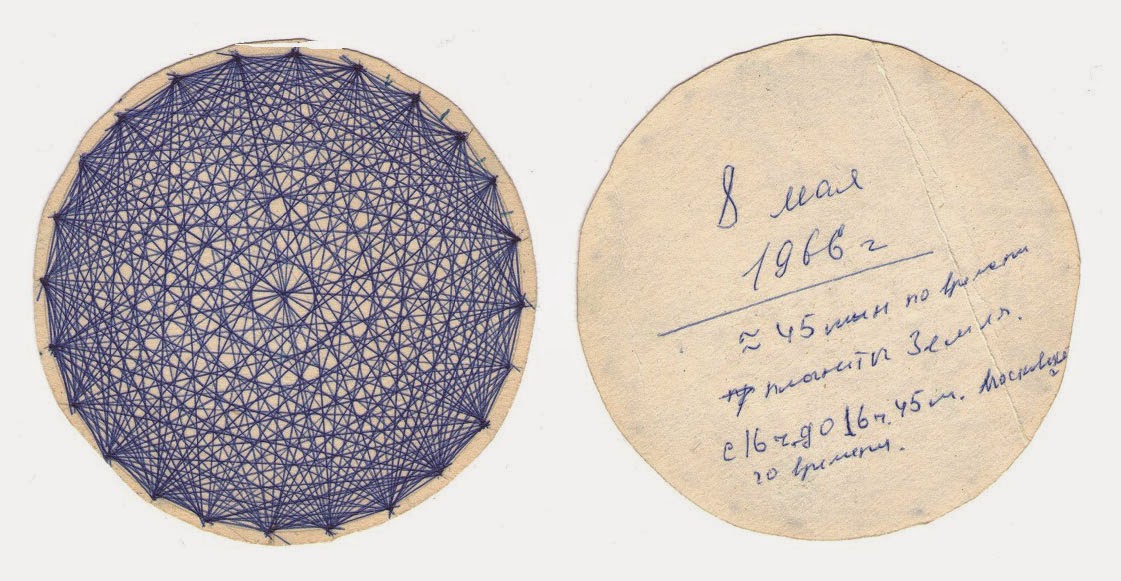 8 мая
1966 г
≈ 45 мин по времени
планеты Земля.
с 16 ч. до 16 ч. 45 м. Московско
го времени.